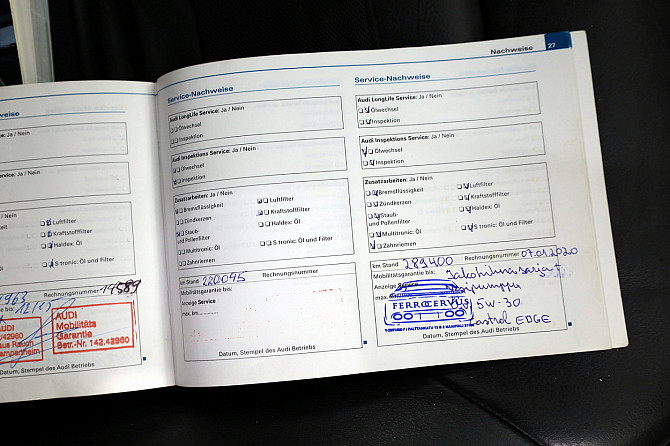 Nachweise 27
Service-Nachweise
Audi LongLife Service: Ja / Nein
Ölwechsel
Inspektion
Audi Inspektions Service: Ja / Nein
Ölwechsel
Inspektion
Zusatzarbeiten: Ja / Nein
Bremsflüssigkeit
Luftfilter
Zündkerzen
Kraftstofffilter
Staub-
und Pollenfilter
Haldex: Öl
Multitronic: Öl
S tronic: Öl und Filter
Zahnriemen
km Stand 220045
Rechnungsnummer
Mobilitätsgarantie bis:
Anzeige Service
max. km
Datum, Stempel des Audi Betriebs
Service-Nachweise
Audi LongLife Service: Ja / Nein
Ölwechsel
Inspektion
Audi Inspektions Service: Ja / Nein
Ölwechsel
Inspektion
Zusatzarbeiten: Ja / Nein
Bremsflüssigkeit
Luftfilter
Zündkerzen
Kraftstofffilter
Staub-
und Pollenfilter
Haldex: Öl
Multitronic: Öl
S tronic: Öl und Filter
Zahnriemen
km Stand 289400
Rechnungsnummer 07.01.2020
Mobilitätsgarantie bis:
Anzeige Service
max.
FERROCERVUS
5W-30
Castrol EDGE
Datum, Stempel des Audi Betriebs
Nein
Luftfilter
Kraftstofffilter
Haldex: Öl
S tronic: Öl und Filter
Rechnungsnummer
AUDI
Mobilitäts
Garantie
Betr.-Nr. 142.42960
Datum, Stempel des Audi Betriebs